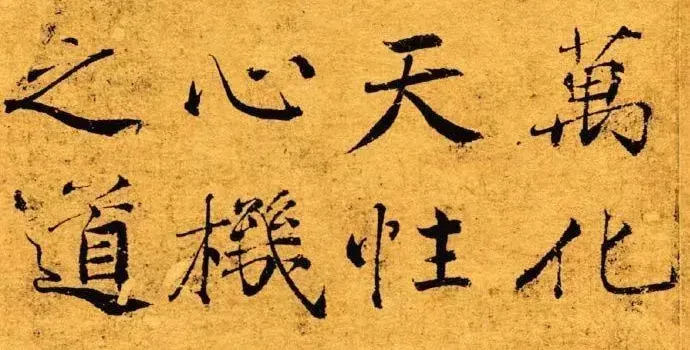 萬化
天性
心機
之道